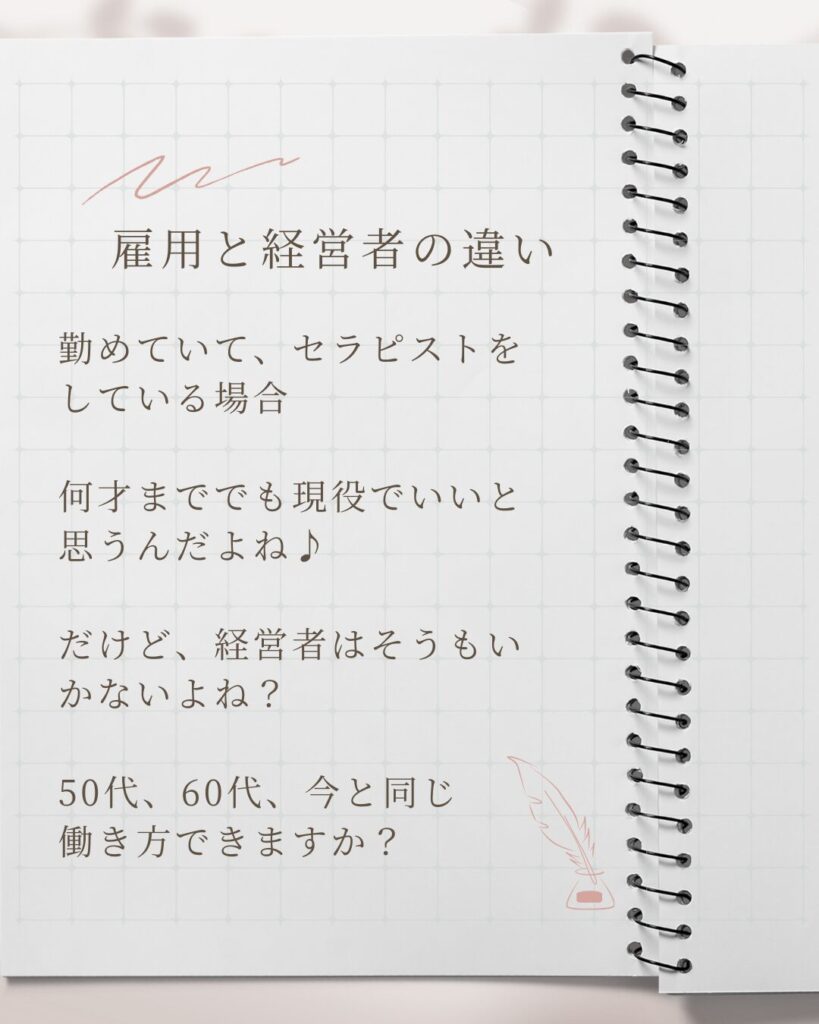 雇用と経営者の違い
勤めていて、セラピストを
している場合
何才まででも現役でいいと
思うんだよね♪
だけど、経営者はそうもい
かないよね？
50代、60代、今と同じ
働き方できますか？